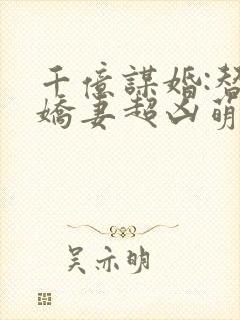 千億謀婚:替
嬌妻超凶萌
吳亦明